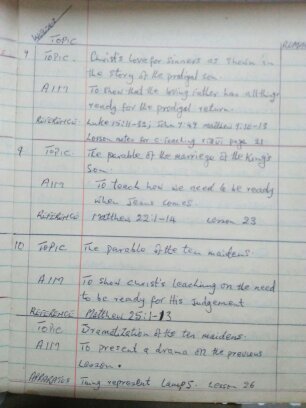 WEEKS
TOPIC
REMAR
9 TOPIC. Christ's love for sinners as shown in
the story of the prodigal son
AIM To show that the loving father has all things
ready for the prodigal return.
REFERENCE Luke 15:11-32; John 7:49 Matthew 9:10-13
Lesson notes for a teaching page 21
9 TOPIC. The parable of the marriage of the King's
Son.
AIM To teach how we need to be ready
when Jesus comes
REFERENCE Matthew 22:1-14 Lesson 23
10 TOPIC The parable of the ten maidens.
AIM To show Christ's teaching on the need
to be ready for His Judgement
REFERENCE Matthew 25:1-13
TOPIC Dramatization of the ten maidens.
AIM To present a drama on the previous
Lesson.
APPARATUS represent Lamps. Lesson 26